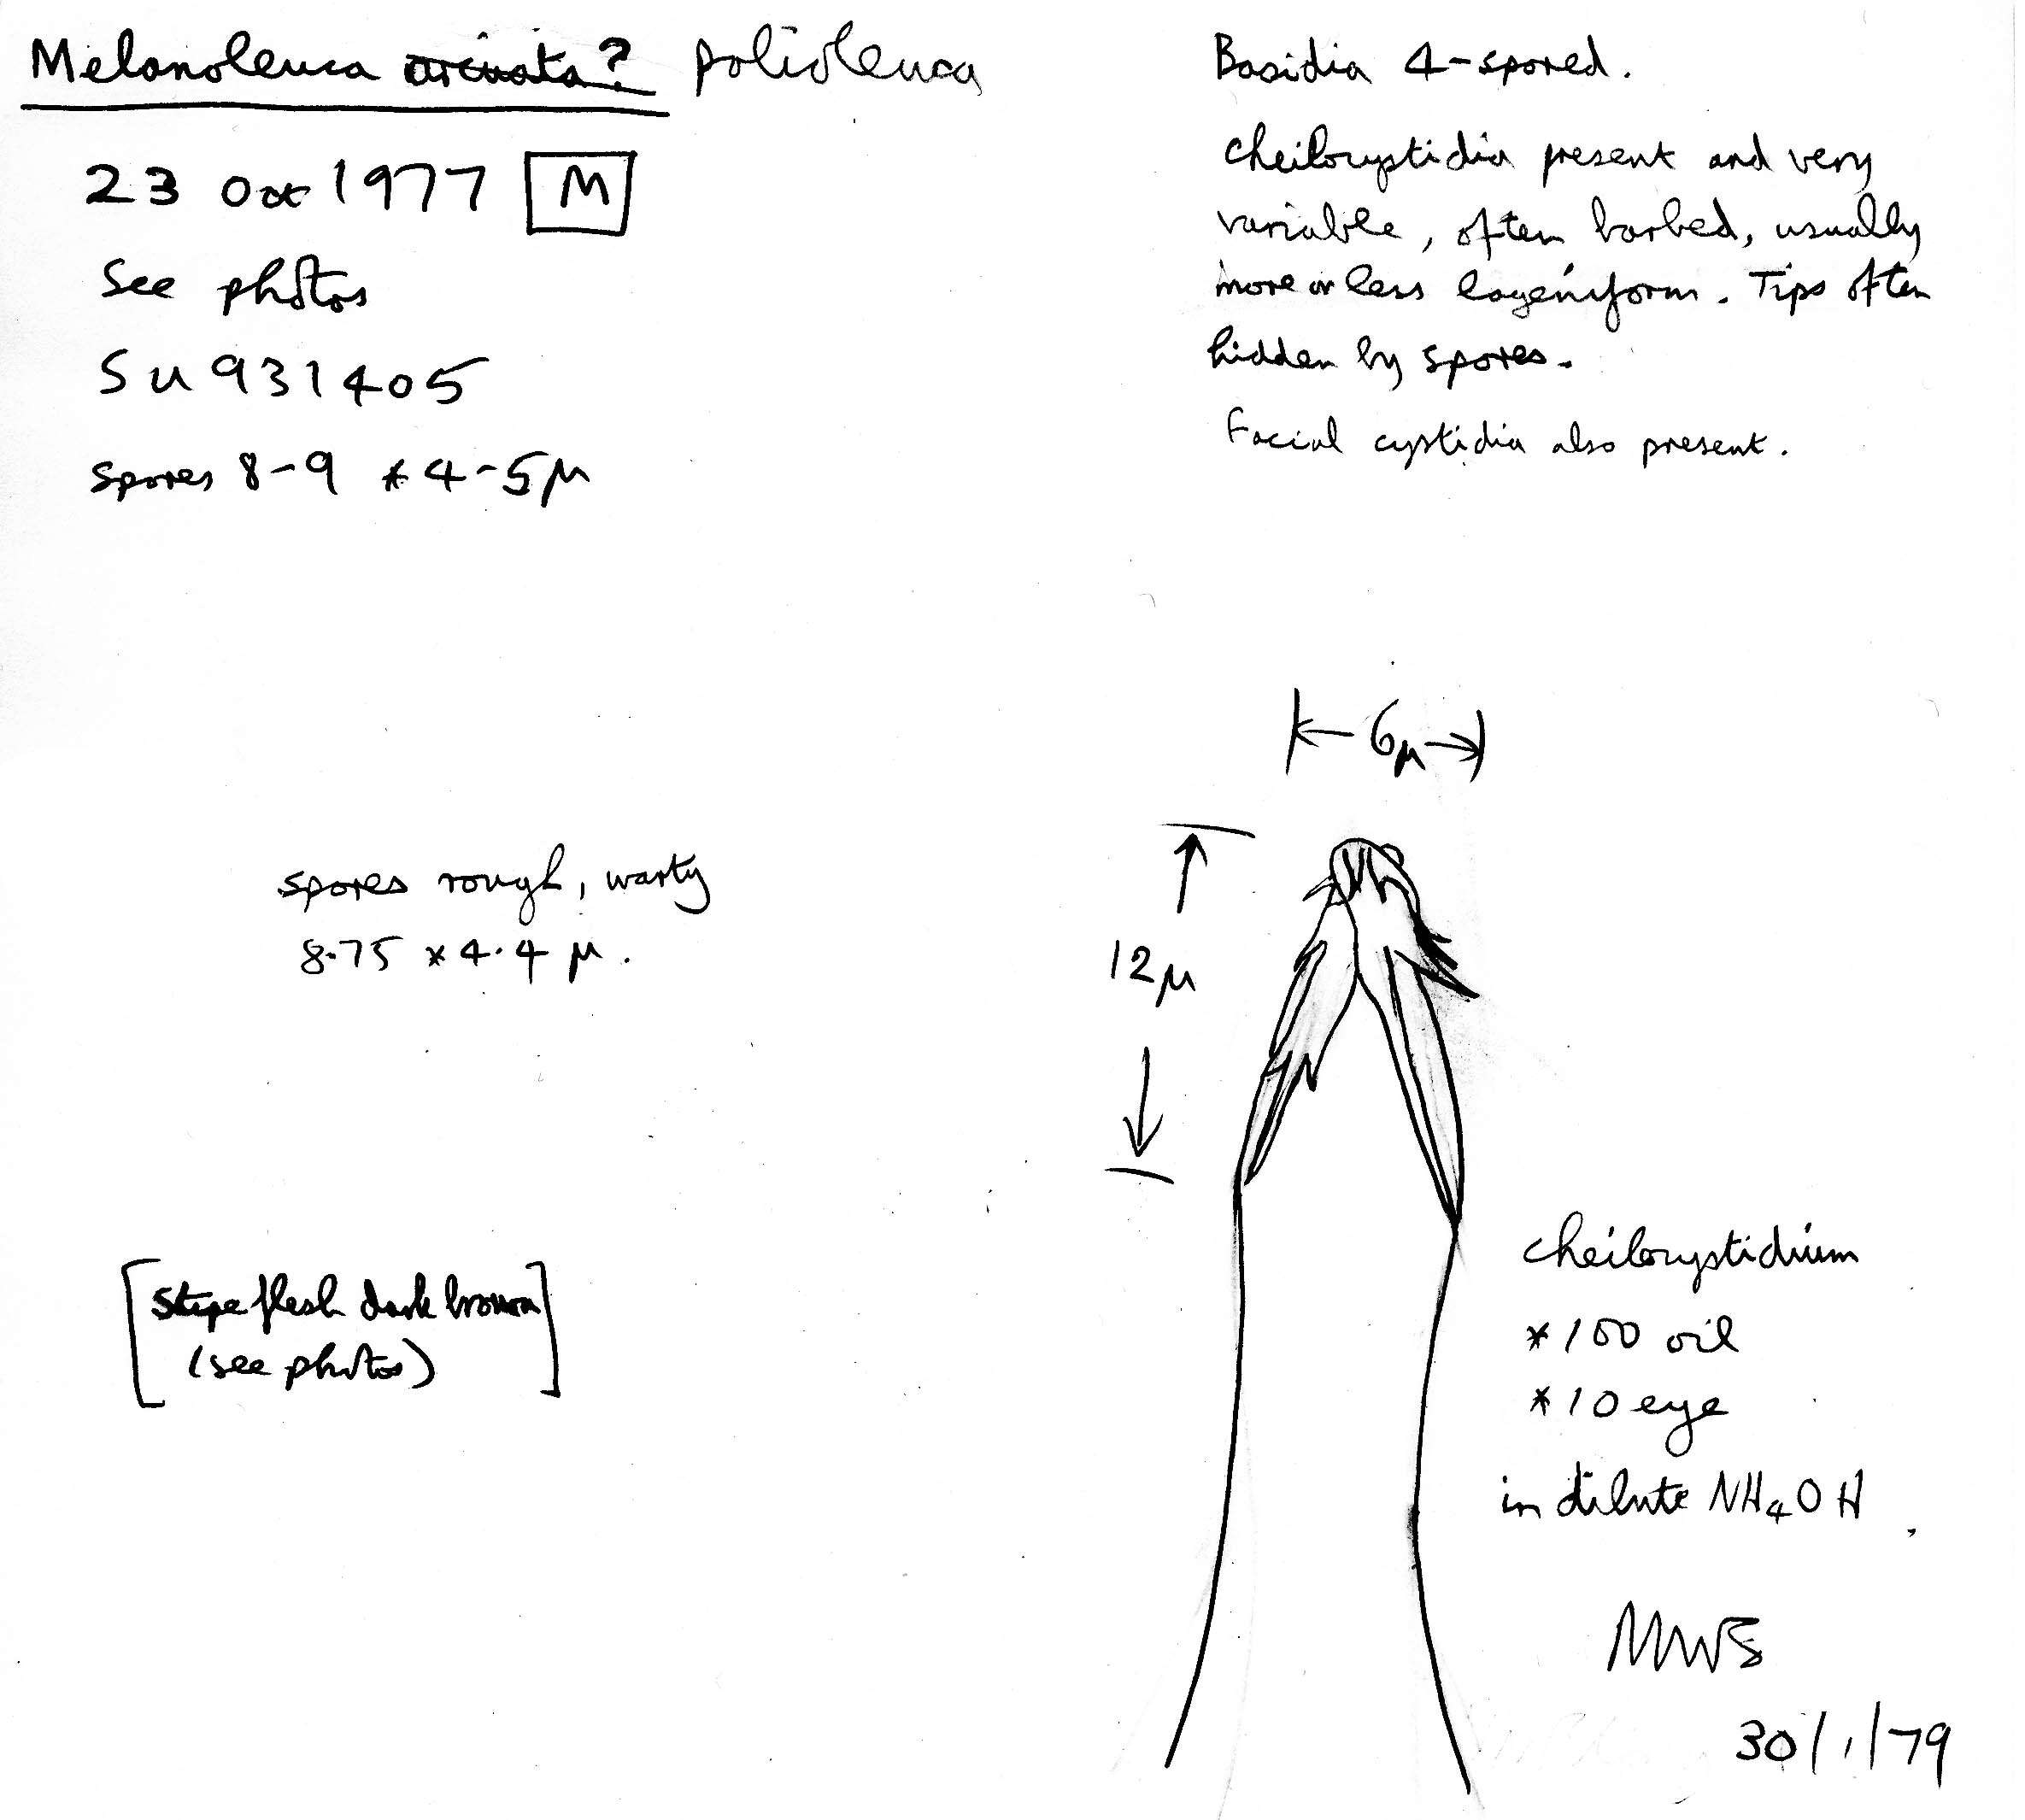 Melanoleuca arcuata? polioleuca
23 Oct 1977 M
See photos
SU 931405
spores 8-9 * 4-5μ
Basidia 4-spored.
Cheilocystidia present and very
variable, often barbed, usually
more or less lageniform. Tips often
hidden by spores.
Facial cystidia also present.
6μ
12μ
spores rough, warty
8.75 * 4.4 μ.
[stipe flesh dark brown
(see photos)]
cheilocystidium
*100 oil
*10 eye
in dilute NH4OH.
MWS
30/1/79